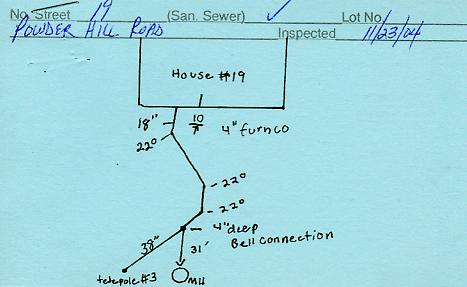 No. Street 19 (San. Sewer) ✓ Lot No.
POWDER HILL ROAD Inspected 11/23/04
House #19
18" 10 4" furnco
22°
22°
22°
4" deep
Bell connection
38"
31'
telepole #3 MH